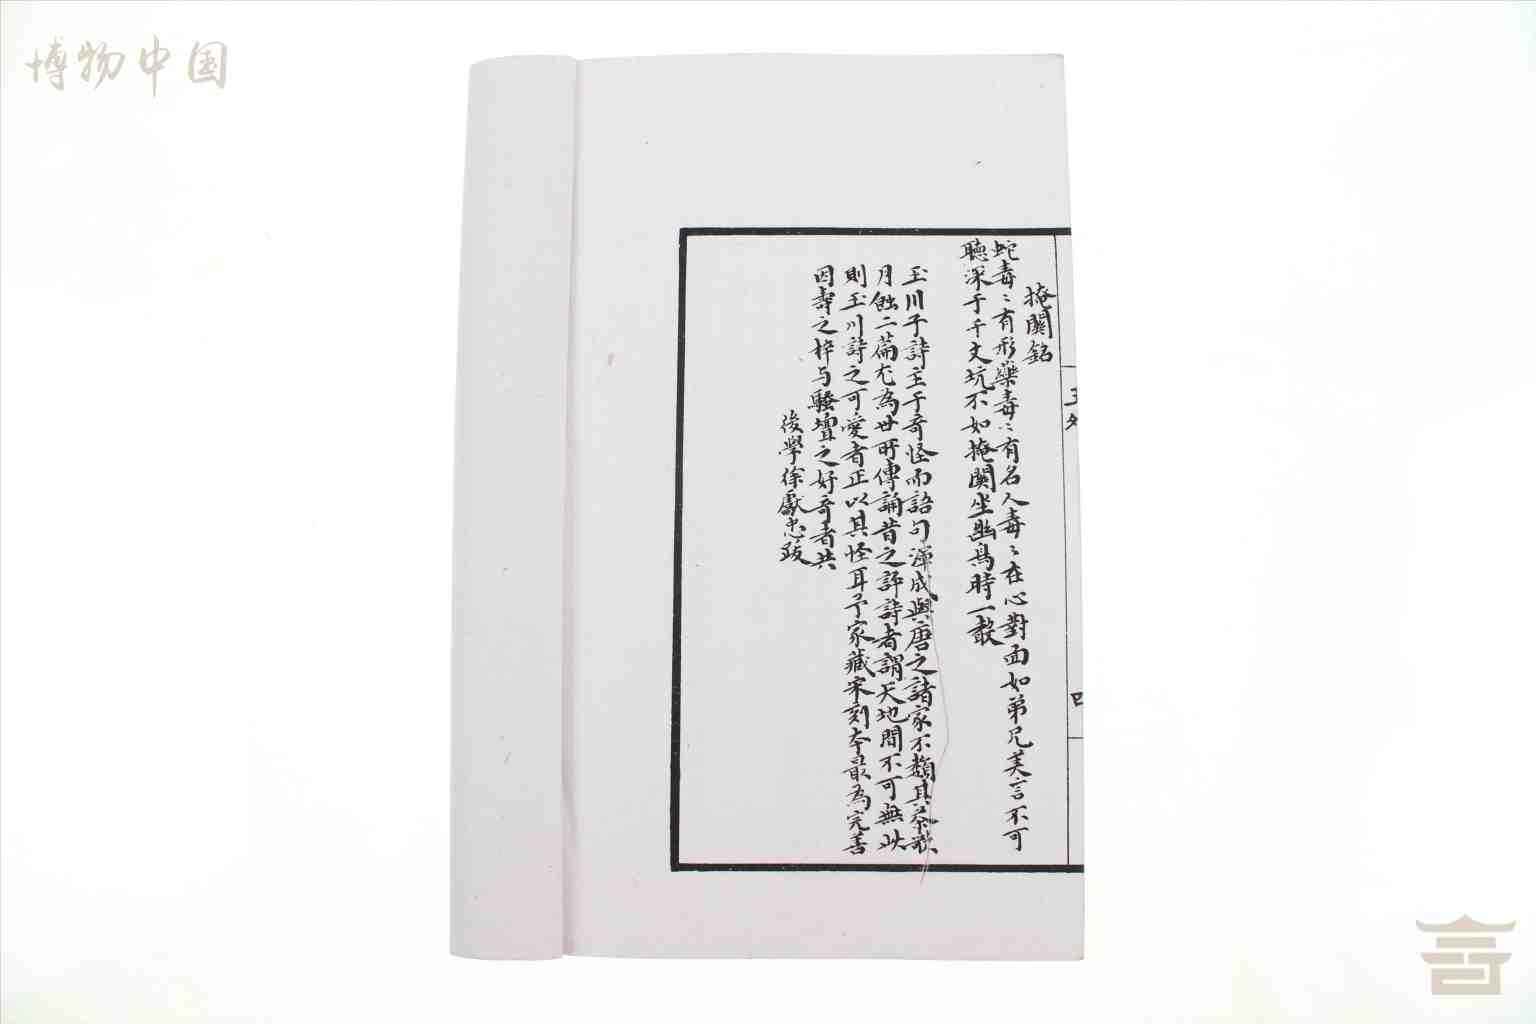 博物中国
掩關銘
蛇毒毒有形藥毒毒有名人毒毒在心對面如弟兄美言不可
聽深于千丈坑不如掩關坐幽鳥時一鼓
玉川子詩主于奇怪而語句渾成與唐之諸家不類其茶歌
月蝕二篇尤為世所傳誦昔之評詩者謂天地間不可無此
則玉川詩之可愛者正以其怪耳予家藏宋刻本最為完善
因壽之梓与騷壇之好奇者共
後學徐獻忠跋
玉外
四